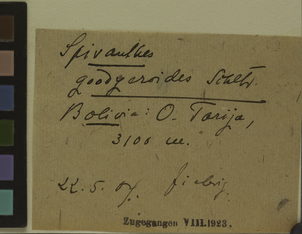 Spiranthes
goodyeroides Schltr.
Bolivia: O. Tarija,
3100 m.
22.5.04. Fiebrig
Zugegangen VIII.1923.